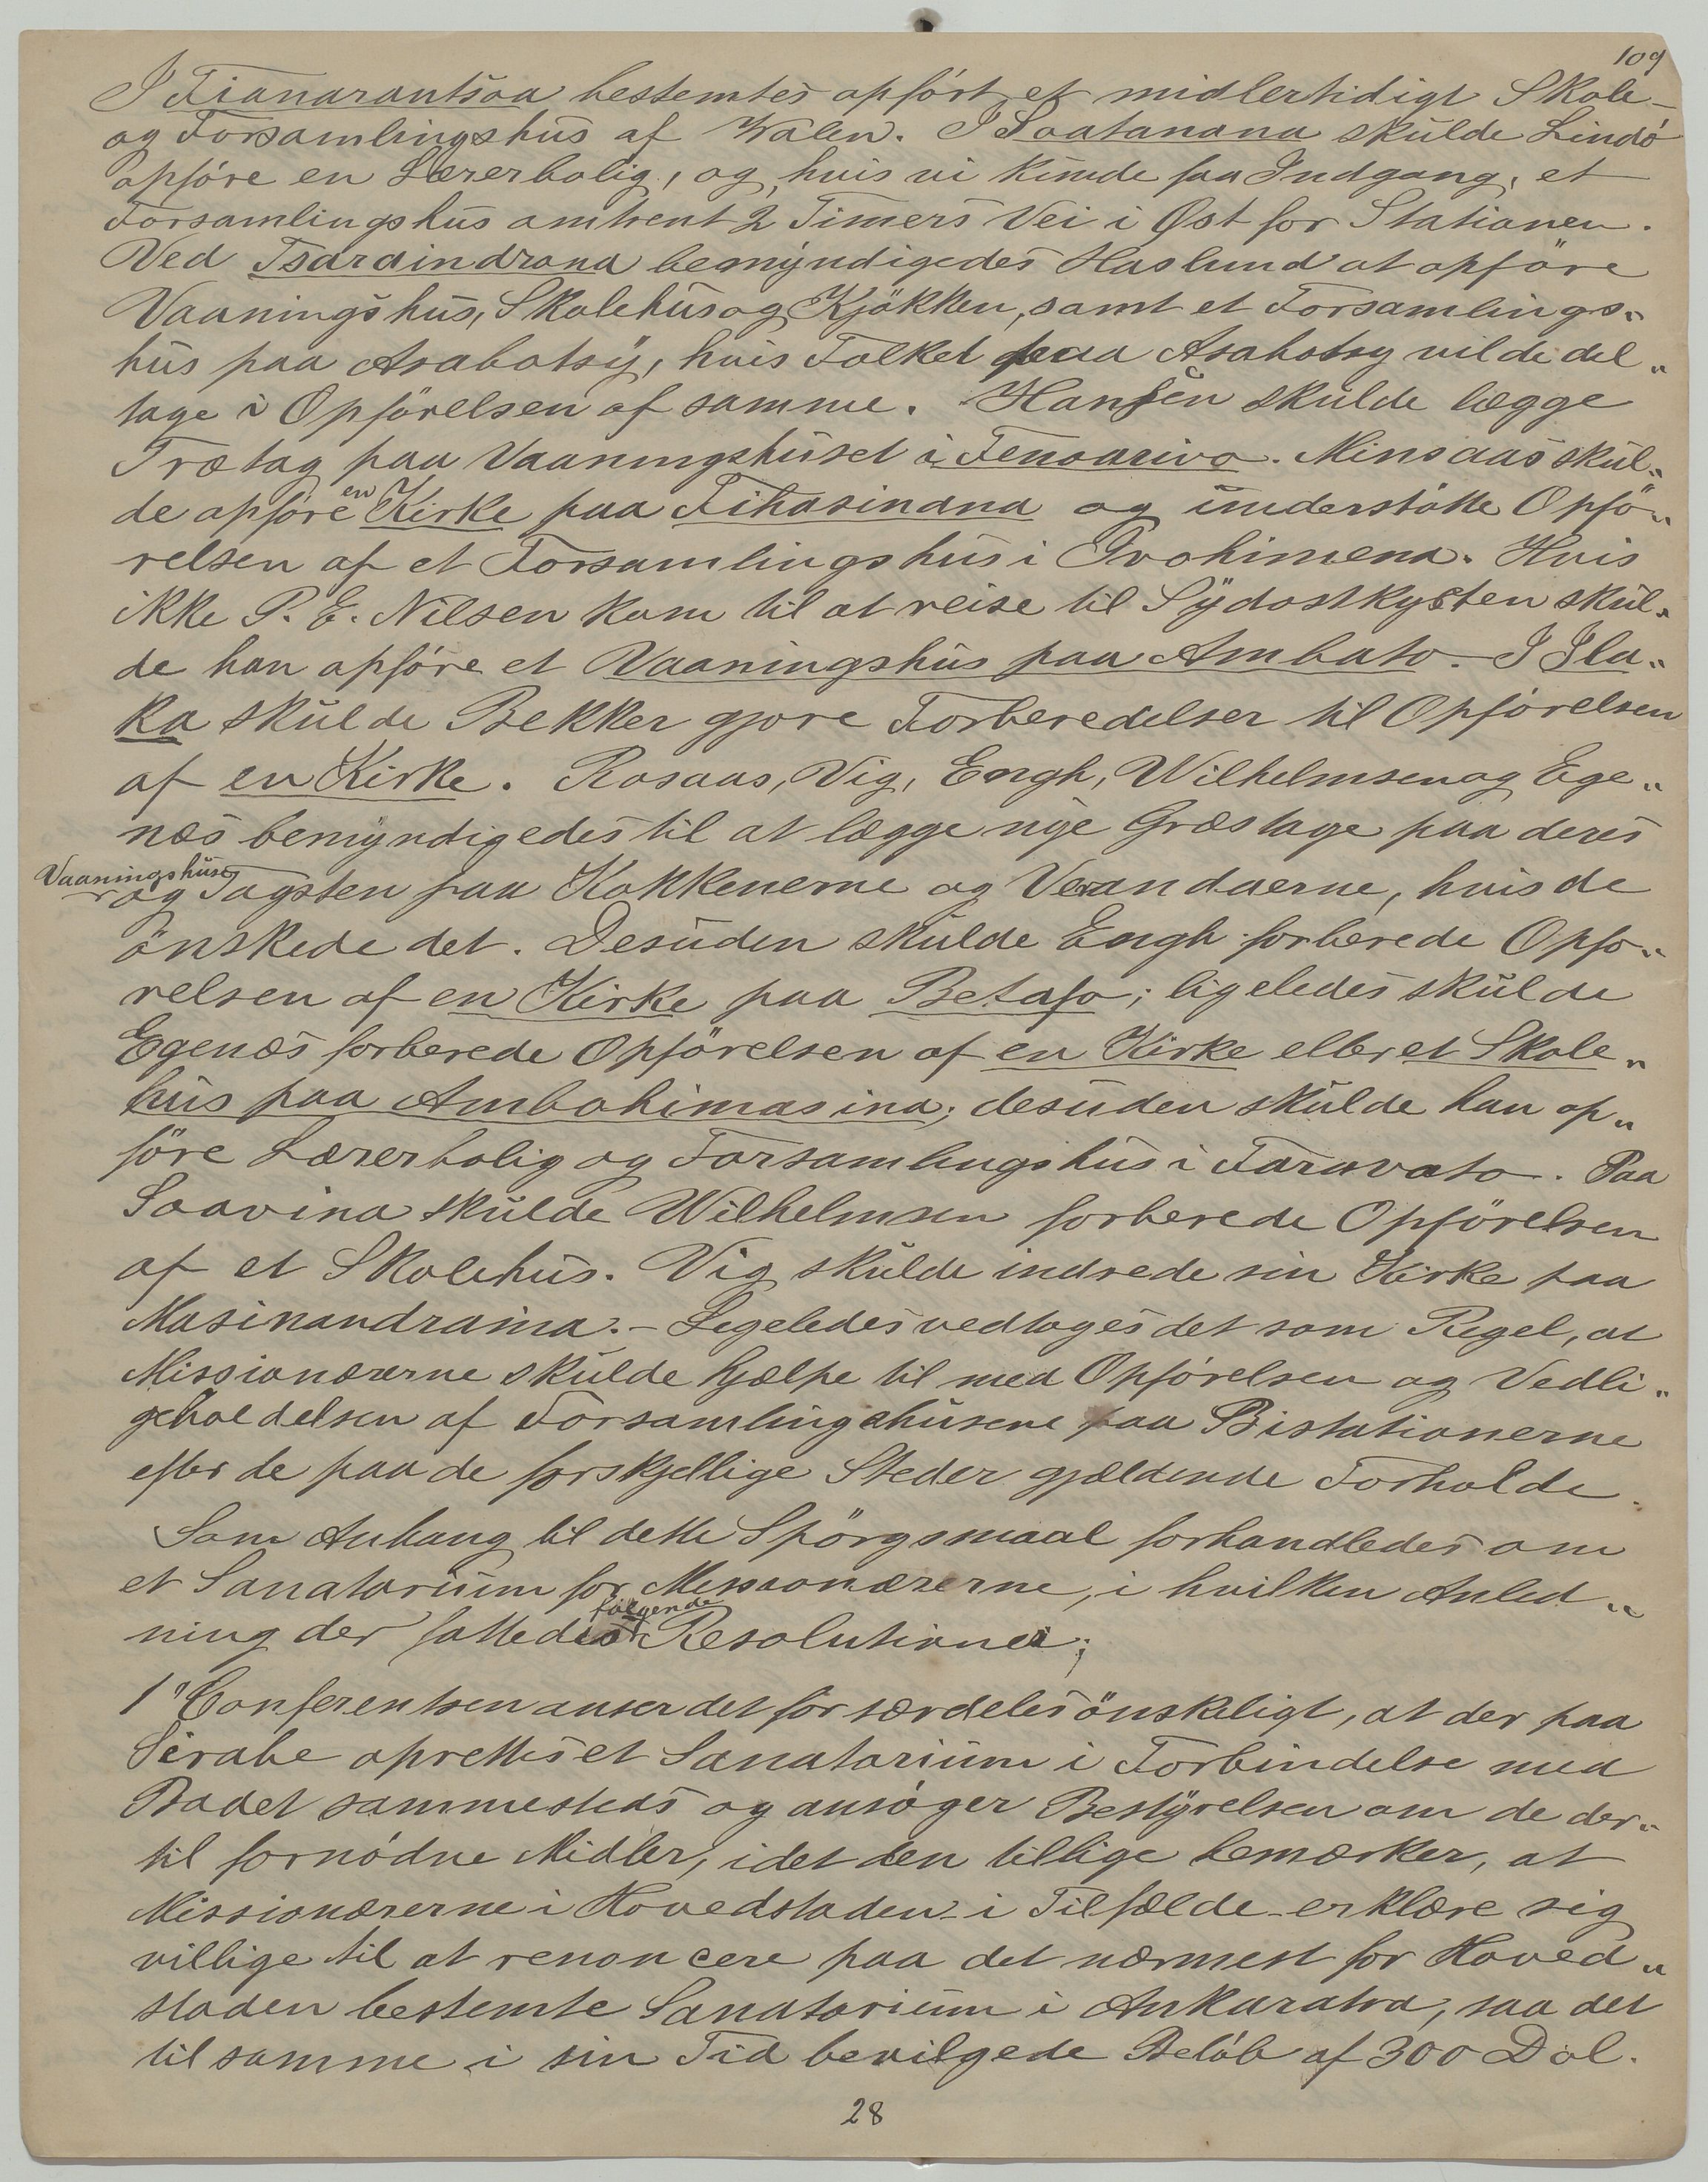 109
I Fianarantsoa bestemtes opført et midlertidigt Skole-
og Forsamlingshus af Walen. I Soatanana skulde Lindö
opføre en Lærerbolig, og, hvis vi kunde faa Indgang, et
Forsamlingshus omtrent 2 Timers Vei i Øst for Stationen.
Ved Tsaraindrana bemyndigedes Haslund at opföre
Vaaningshus, Skolehus og Kjökken, samt et Forsamlings„
hus paa Asabotsy, hvis Folket paa Asabotsy vilde del„
tage i Opförelsen af samme. Hansen skulde lægge
Trætag paa Vaaningshuset i Fenoarivo. Minsaas skul„
de opføre en Kirke paa Fihasinana og understötte Opfö„
relsen af et Forsamlingshus i Ivohimena. Hvis
ikke P. E. Nilsen kom til at reise til Sydostkysten skul„
de han opføre et Vaaningshus paa Ambato. I Ila„
ka skulde Bekker gjøre Forberedelser til Opførelsen
af en Kirke. Rosaas, Vig, Engh, Wilhelmsen og Ege„
næs bemyndigedes til at lægge nye Græstage paa deres
Vaaningshuse
og Tagsten paa Kokkenerne og Verandaerne, hvis de
önskede det. Desuden skulde Engh forberede Opfo„
relsen af en Kirke paa Betafo; ligeledes skulde
Egenæs forberede Opförelsen af en Kirke eller et Skole„
hus paa Ambohimasina; desuden skulde han op„
före Lærerbolig og Forsamlingshus i Faravato. Paa
Soavina skulde Wilhelmsen forberede Opförelsen
af et Skolehus. Vig skulde indrede sin Kirke paa
Masinandraina. - Ligeledes vedtoges det som Regel, at
Missionærerne skulde hjælpe til med Opførelsen og Vedli„
geholdelsen af Forsamlingshusene paa Bistationerne
efter de paa de forskjellige Steder gjældende Forholde.
Som Anhang til dette Spörgsmaal forhandledes om
et Sanatorium for Missionærerne, i hvilken Anled„
ning der fattedes følgende Resolutioner;
1" Conferentsen anser det for særdeles önskeligt, at der paa
Sirabe oprettes et Sanatorium i Forbindelse med
Badet sammesteds og ansøger Bestyrelsen om de der„
til fornødne Midler, idet den tillige bemærker, at
Missionærerne i Hovedstaden - i Tilfælde - erklære sig
villige til at renoncere paa det nærmest for Hoved„
staden bestemte Sanatorium i Ankaratra, saa det
til samme i sin Tid bevilgede Beløb af 300 Dol.
28